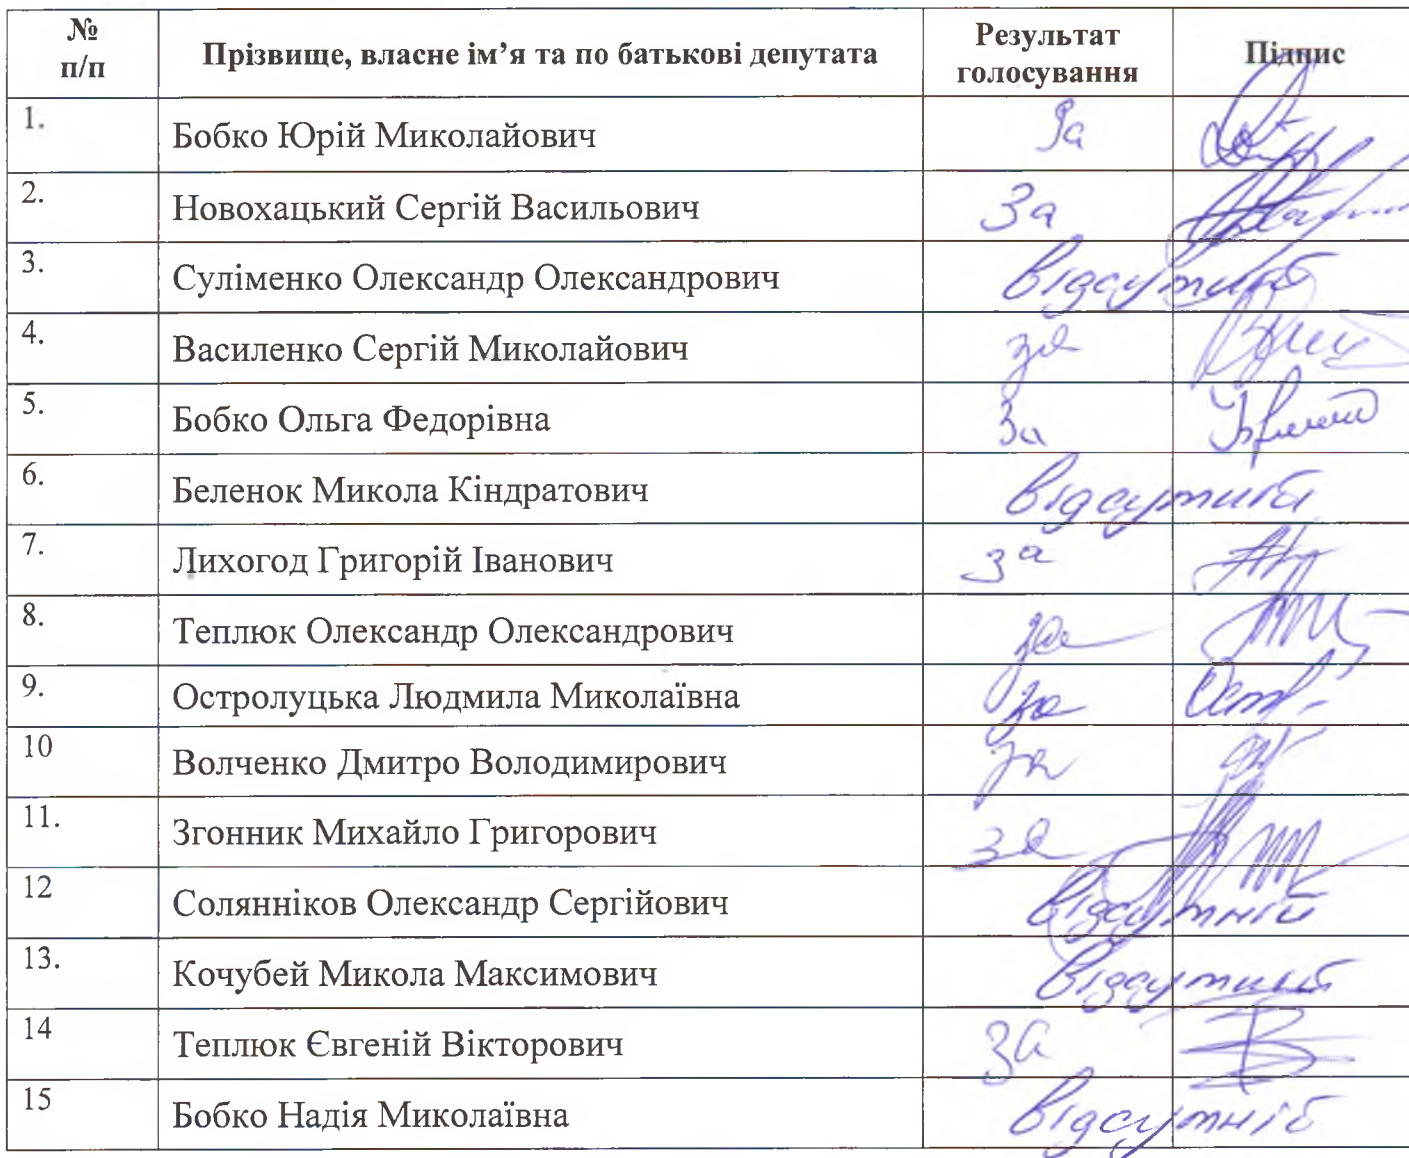 № п/п Прізвище, власне ім’я та по батькові депутата Результат голосування Підпис
1. Бобко Юрій Миколайович За
2. Новохацький Сергій Васильович За
3. Суліменко Олександр Олександрович Відсутній
4. Василенко Сергій Миколайович за
5. Бобко Ольга Федорівна За
6. Беленок Микола Кіндратович Відсутній
7. Лихогод Григорій Іванович за
8. Теплюк Олександр Олександрович за
9. Остролуцька Людмила Миколаївна за
10 Волченко Дмитро Володимирович за
11. Згонник Михайло Григорович за
12 Солянніков Олександр Сергійович Відсутній
13. Кочубей Микола Максимович Відсутній
14 Теплюк Євгеній Вікторович За
15 Бобко Надія Миколаївна Відсутній